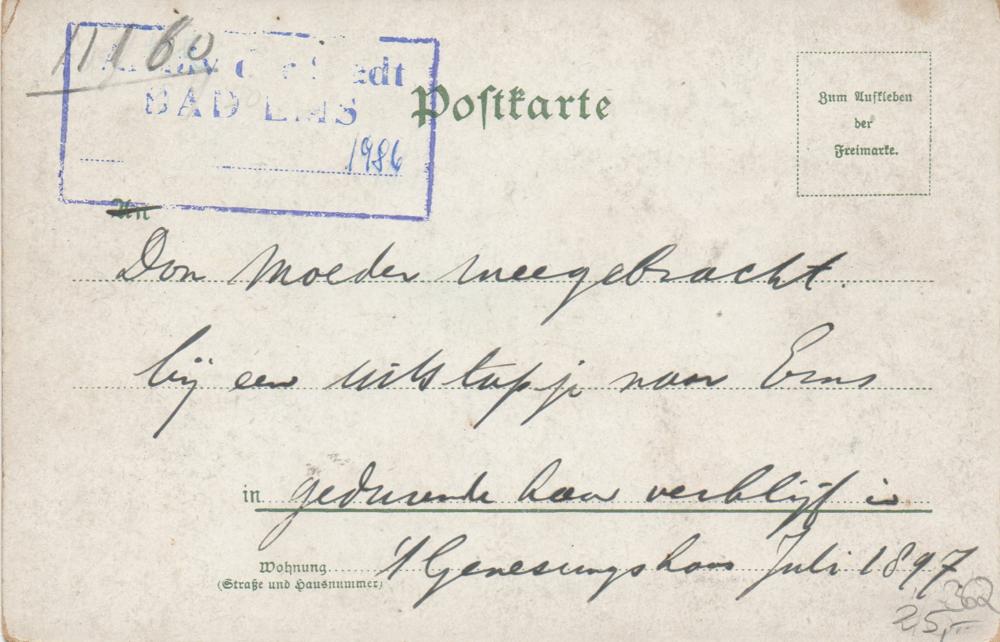 11160
Archiv der Stadt
BAD EMS
1986
Postkarte
Zum Aufkleben
der
Freimarke.
An
Don Moeder meegebracht.
bij een uitstapje naar Ems
in gedurende haar verblijf in
Wohnung 't Genesingshaus Juli 1897
(Straße und Hausnummer)
362
25,-